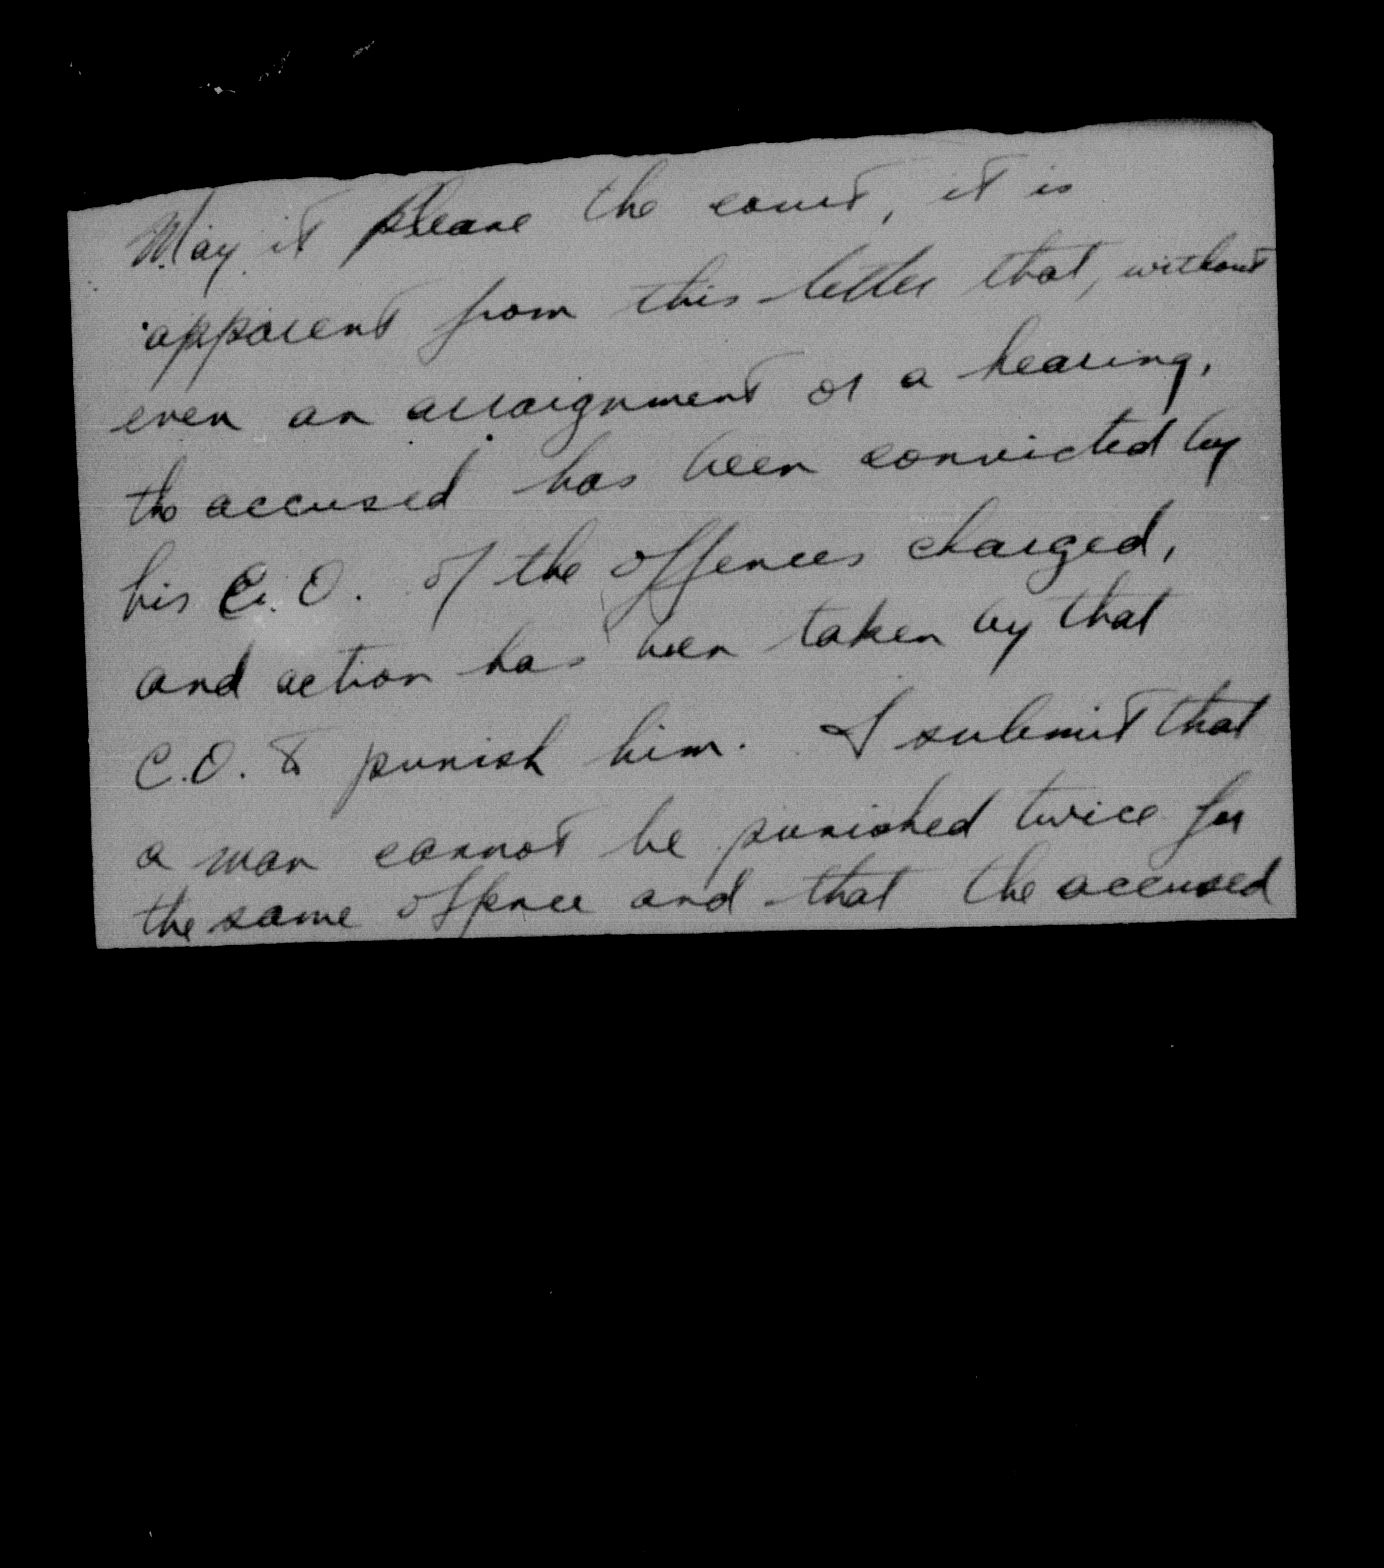 May it please the court, it is
apparent from this letter that, without
even an arraignment or a hearing,
the accused has been convicted by
his C.O. of the offences charged,
and action has been taken by that
C.O. to punish him. I submit that
a man cannot be punished twice for
the same offence and that the accused